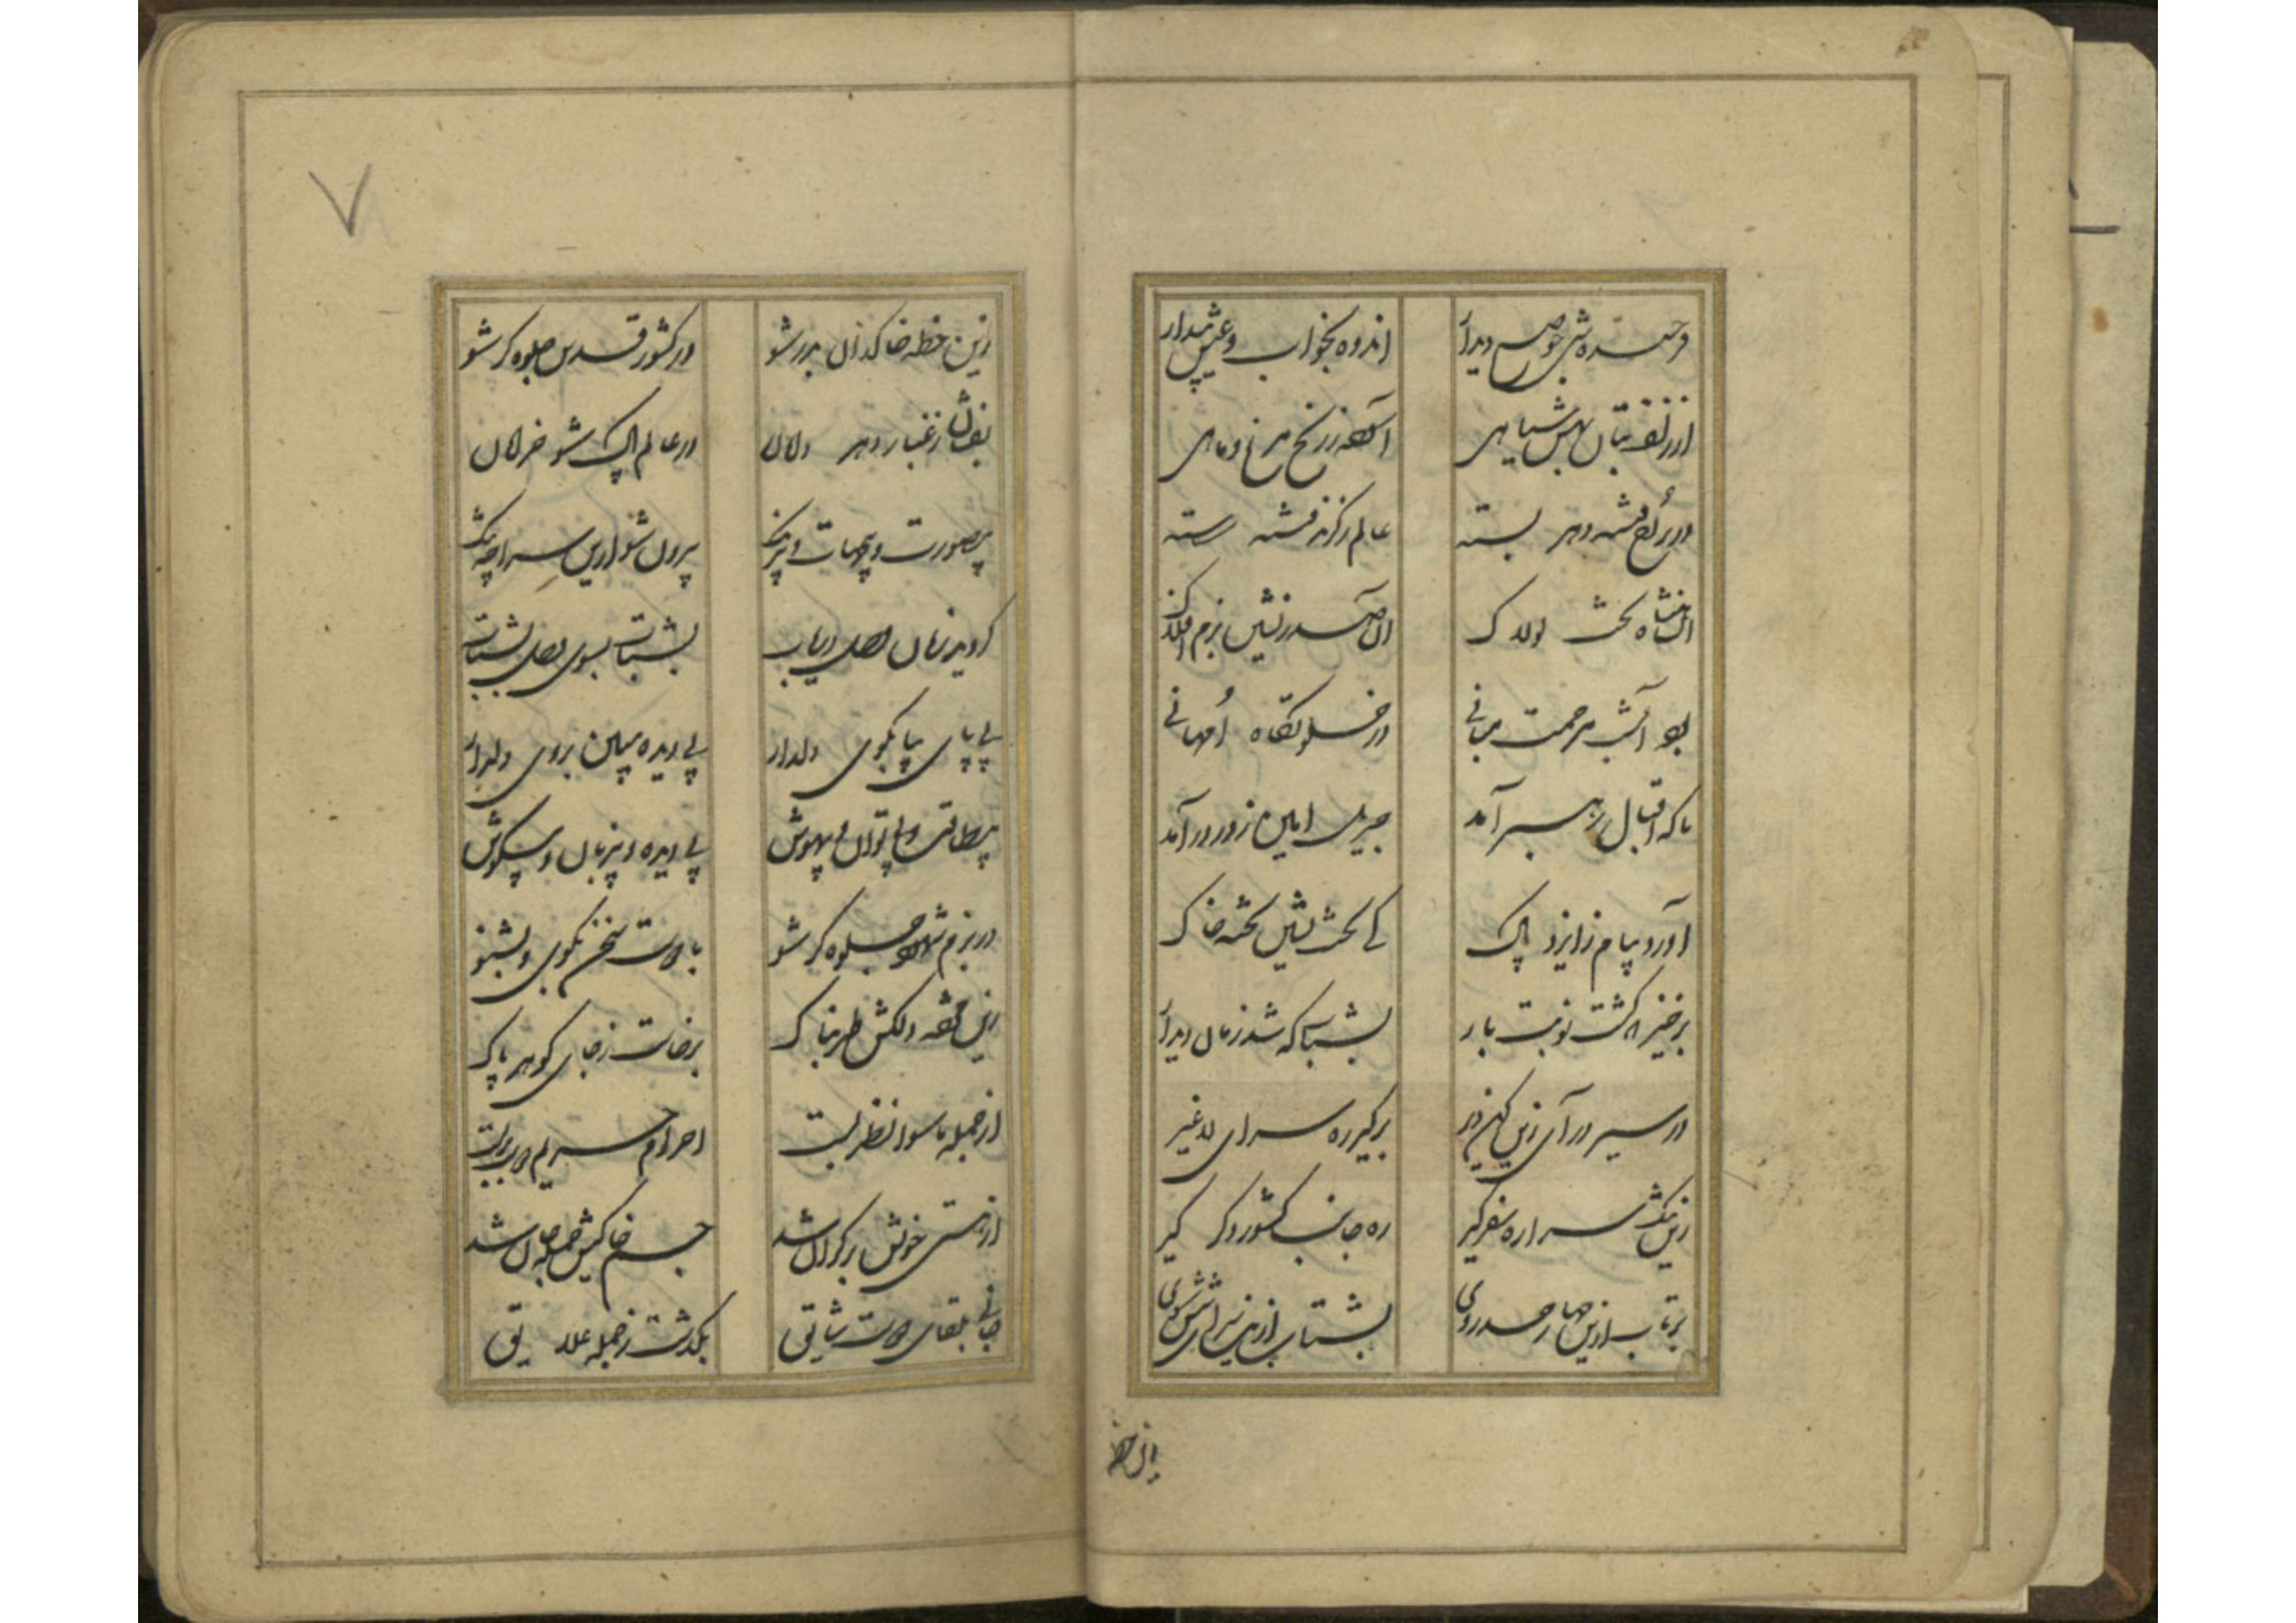 فرخنده شبی چو صبح دیدار
اندوه بخواب و عیش بیدار
از زلف بتان بهش سیاهی
آسوده ز رنج مرغ و ماهی
در بر رخ فتنه دهر بسته
عالم ز گزند فتنه رسته
آن شاه تخت لولاک
آن صدرنشین بزم افلاک
بود آن شب مرحمت مبانی
در خلوتگاه امهانی
ناگه اقبال رهبر آمد
جبریل امین ز در درآمد
آورد پیام ز ایزد پاک
کای تخت نشین تخته خاک
برخیز که گشت نوبت بار
بشتاب که شد زمان دیدار
در سیر درآی زین کهن دیر
برگیر ره سرای لا غیر
زین تنگ سرا ره سفر گیر
ره جانب کشور دگر گیر
برتاب ازین چهار حد روی
بشتاب ازین سرای شش سوی
زین خطه
زین خطه خاکدان بدر شو
در کشور قدس جلوه گر شو
بفشان ز غبار دهر دامان
در عالم پاک شو خرامان
بی صورت و بی جهات و بی رنگ
بیرون شو ازین سراچه تنگ
آمد زمان وصل دریاب
بشتاب بسوی وصل بشتاب
بی پای بیا بکوی دلدار
بی دیده ببین بروی دلدار
بی طاقت و بی توان و بیهوش
بی دیده و بی زبان و بی گوش
در بزم شهود جلوه گر شو
با دوست سخن بگوی و بشنو
زین مژده دلکش طربناک
برخاست ز جای گوهر پاک
از جمله ماسوا نظر بست
احرام حریم دوست بربست
از هستی خویش بر کران شد
جسم خاکیش جمله جان شد
جانی بلقای دوست شایق
بگذشت ز جمله علایق
۷